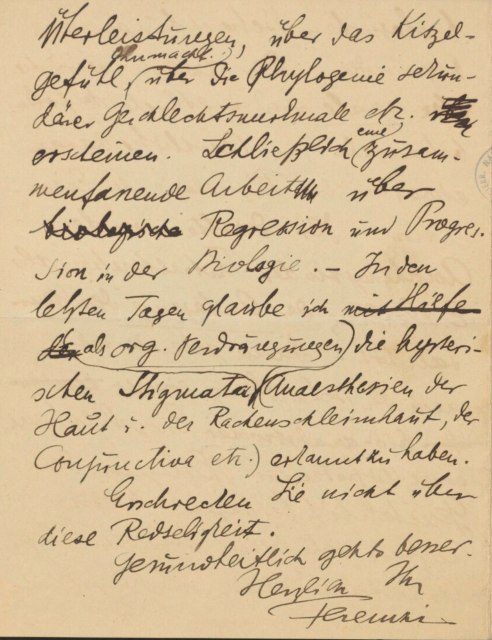 Überleistungen, über das Kitzel-
gefühl, (Ohnmacht), über die Phylogenie sekun-
därer Geschlechtsmerkmale etz.
erscheinen. Schließlich eine zusam-
menfassende Arbeit über
biologische Regression und Progres-
sion in der Biologie. – In den
letzten Tagen glaube ich mit Hilfe
der als org. Verdrängungen) die hysteri-
schen Stigmata (Anaesthesien der
Haut u. der Rachenschleimhaut, der
Conjunctiva etz.) erkannt zu haben.
Erschrecken Sie nicht über
diese Redseligkeit.
Gesundheitlich gehts besser.
Herzlich Ihr
Ferenczi